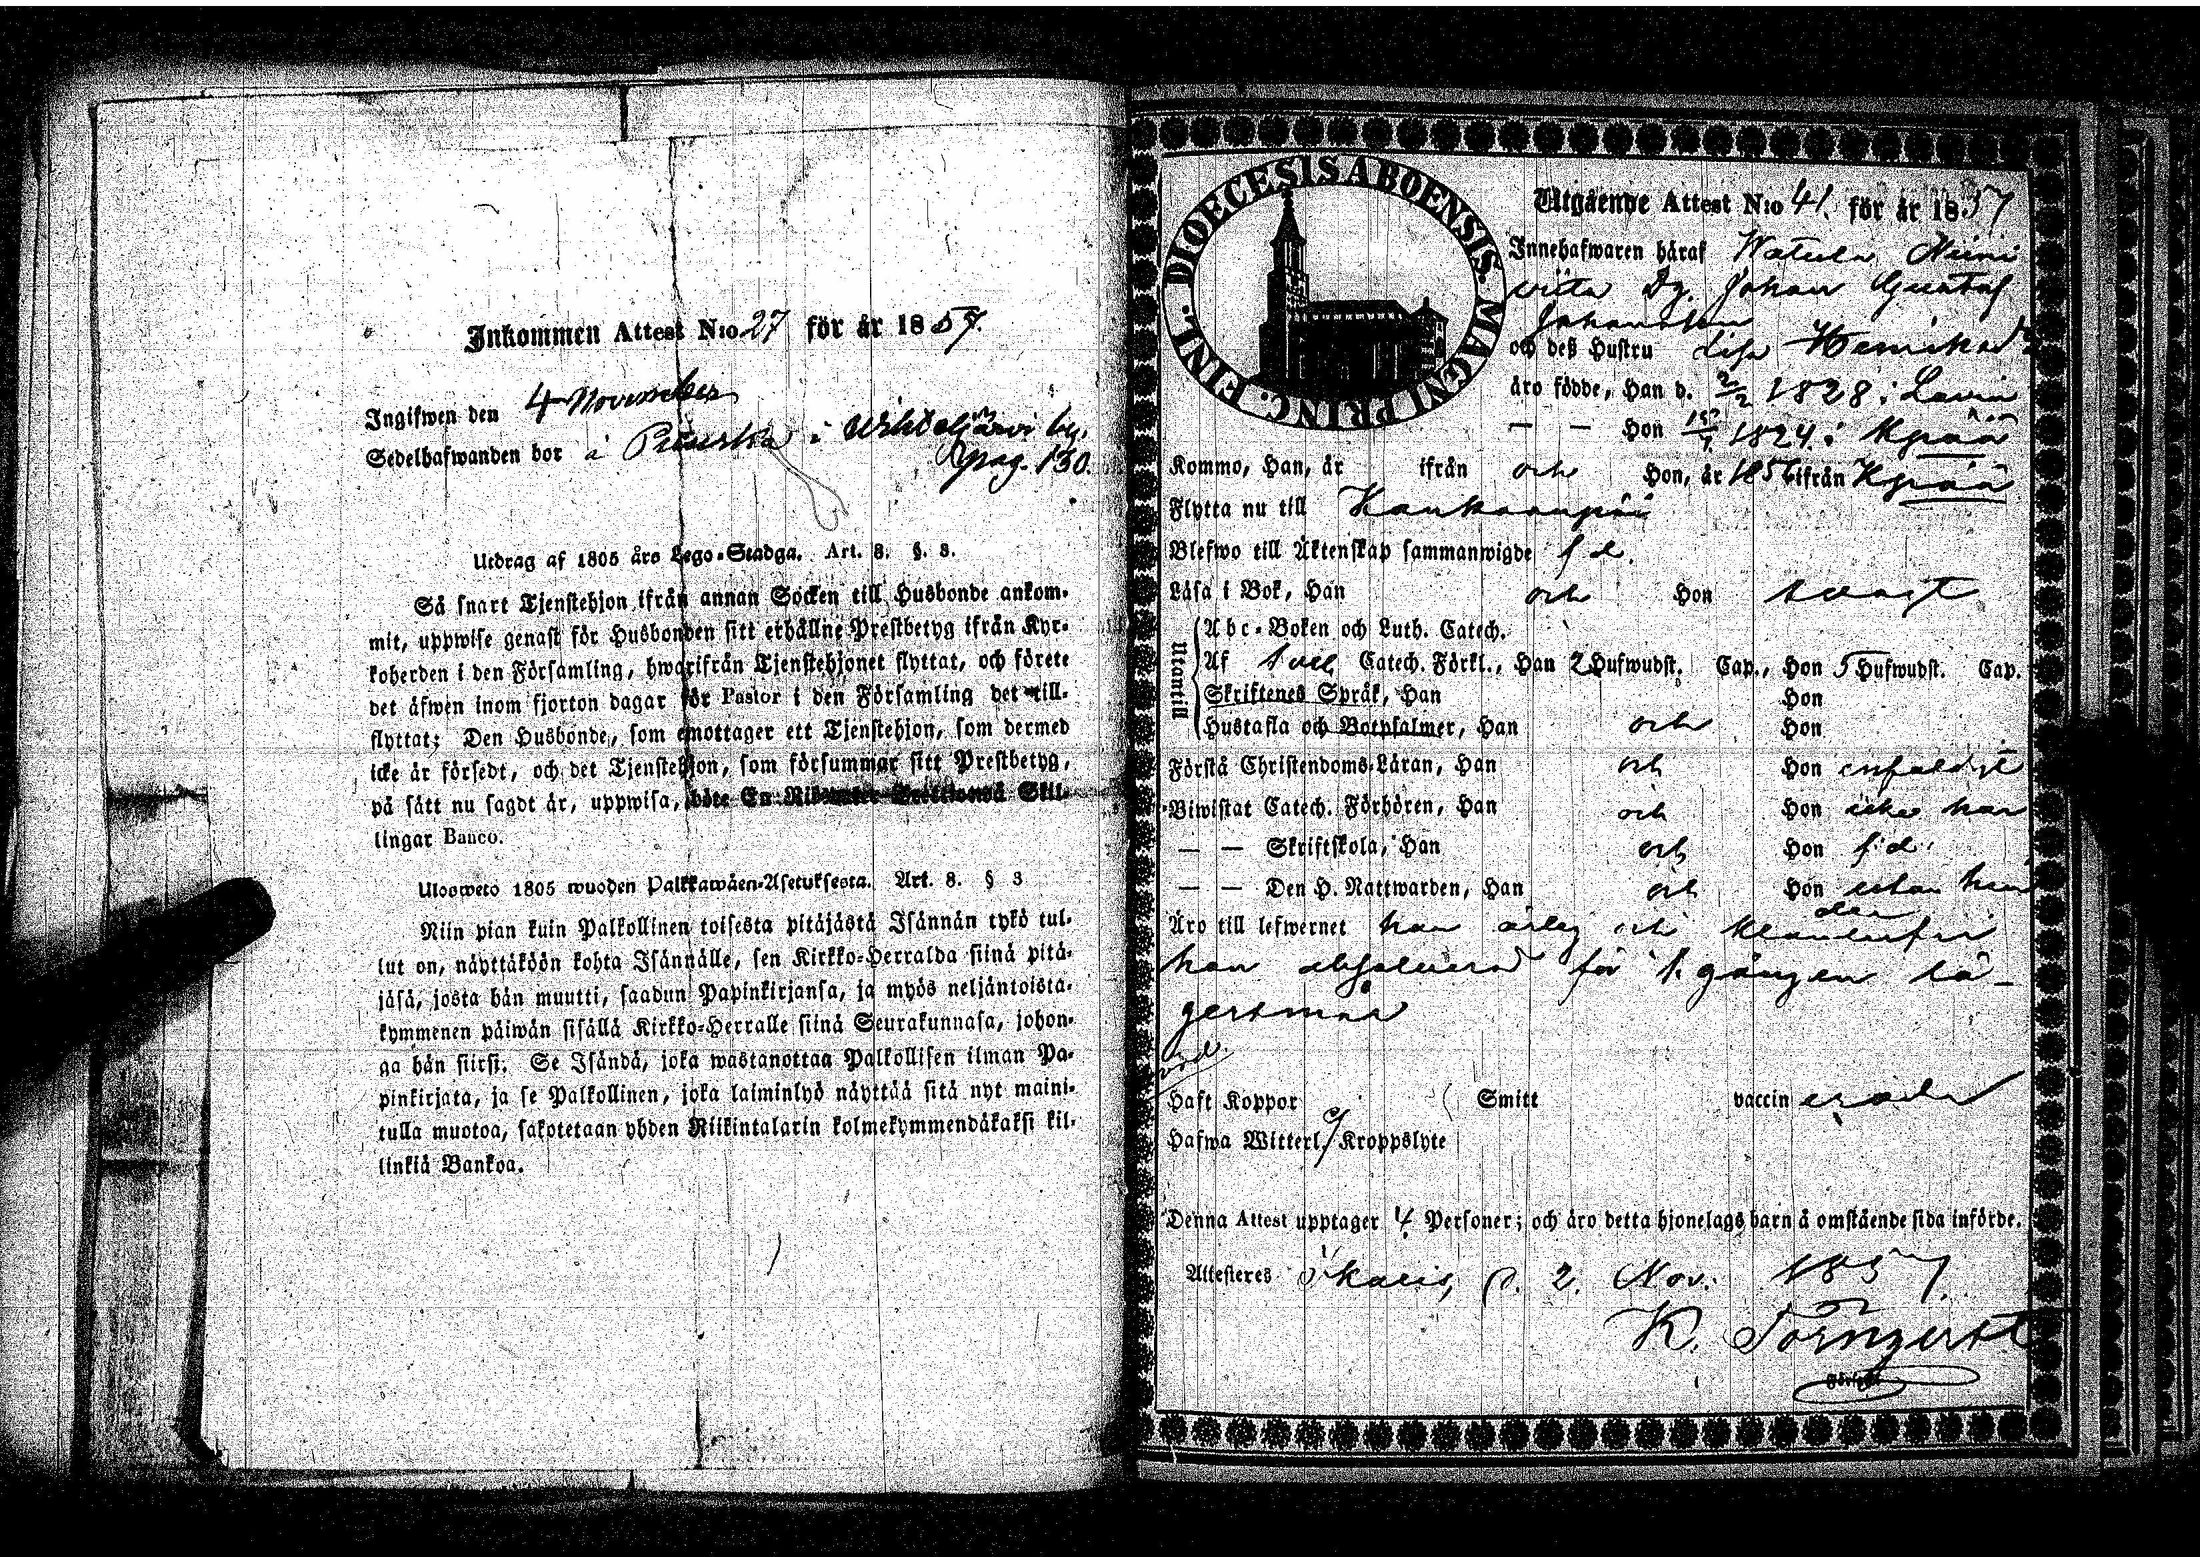 Inkommen Attest N:o 27 för år 1857.
Ingifwen den 4 November
Sedelhafwanden bor å i by.
pag. 130.
Utdrag af 1805 års Lego-Stadga. Art. 8. §. 8.
Så snart Tjenstehjon ifrån annan Socken till Husbonde ankom-
mit, uppwise genast för Husbonden sitt erhållne Prestbetyg ifrån Kyr-
koherden i den Församling, hwarifrån Tjenstehjonet flyttat, och förete
det äfwen inom fjorton dagar för Pastor i den Församling det till-
flyttat; Den Husbonde, som emottager ett Tjenstehjon, som dermed
icke är försedt, och det Tjenstehjon, som försummar sitt Prestbetyg,
på sätt nu sagdt är, uppwisa, böte En Skil-
lingar Banco.
Ulosweto 1805 wuoden Palkkawäen-Asetuksesta. Art. 8. § 3
Niin pian kuin Palkollinen toisesta pitäjästä Isännän tykö tul-
lut on, näyttäköön kohta Isännälle, sen Kirkko-Herralda siinä pitä-
jäsä, josta hän muutti, saadun Papinkirjansa, ja myös neljäntoista-
kymmenen päiwän sisällä Kirkko-Herralle siinä Seurakunnasa, johon-
ga hän siirsi. Se Isändä, joka wastanottaa Palkollisen ilman Pa-
pinkirjata, ja se Palkollinen, joka laiminlyö näyttää sitä nyt maini-
tulla muotoa, sakotetaan yhden Riikintalarin kolmekymmendäkaksi kil-
linkiä Bankoa.
DIOECESIS ABOENSIS MAGNI PRINC. FINL.
Utgående Attest N:o 41. för år 1857
Innehafwaren häraf Watula
Dg. Johan Gustaf
Johansson
och deß Hustru Lisa
äro födde, Han d. 1828 i Lavia
— — Hon 1824 i Kpää
Kommo, Han, år ifrån och Hon, år 1856 ifrån Kpää
Flytta nu till Kankaanpää
Blefwo till Äktenskap sammanwigde s. d.
Läsa i Bok, Han och Hon swagt
Utantill
Abc-Boken och Luth. Catech.
Af Catech. Förkl., Han 2 Hufwudst. Cap., Hon 5 Hufwudst. Cap.
Skriftenes Språk, Han Hon
Hustafla och Botpsalmer, Han och Hon
Förstå Christendoms-Läran, Han och Hon enfaldigt
Biwistat Catech. Förhören, Han och Hon icke här
— — Skriftskola, Han och Hon s. d.
— — Den H. Nattwarden, Han och Hon
Äro till lefwernet han ärlig och
hon absolverad för 1. gången lä-
gersmål
Haft Koppor Smitt vaccinerade
Hafwa Witterl. Kroppslyte
Denna Attest upptager 4 Personer; och äro detta hjonelags barn å omstående sida införde.
Attesteres Ikalis, d. 2. Nov. 1857.
K.